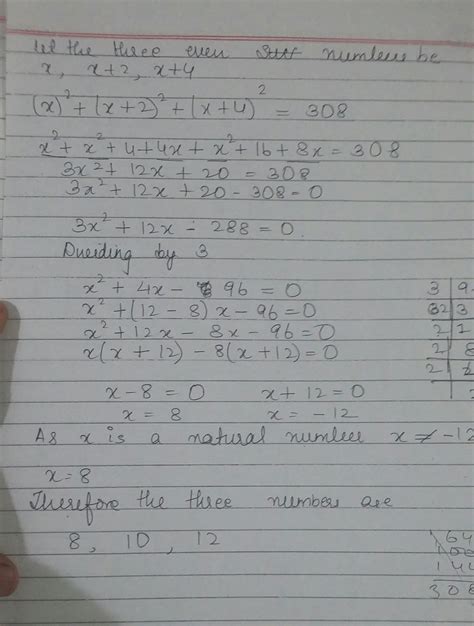 let the three even numbers be
x, x+2, x+4
(x)² + (x+2)² + (x+4)² = 308
x² + x² + 4 + 4x + x² + 16 + 8x = 308
3x² + 12x + 20 = 308
3x² + 12x + 20 - 308 = 0
3x² + 12x - 288 = 0
Dueiding by 3
x² + 4x - 96 = 0
x² + (12 - 8) x - 96 = 0
x² + 12x - 8x - 96 = 0
x(x + 12) - 8(x + 12) = 0
x - 8 = 0 x + 12 = 0
x = 8 x = -12
As x is a natural number x ≠ -12
x = 8
Therefore the three numbers are
8, 10, 12
64
100
144
308